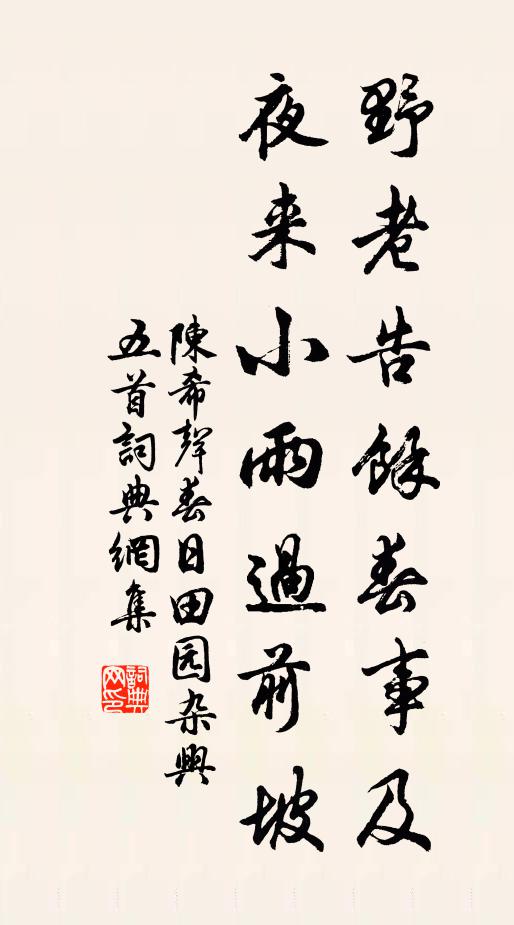 野老告餘春事及
夜来小雨過前坡
陳希聲春日田园杂興
五首詞典網集
詞典
网印